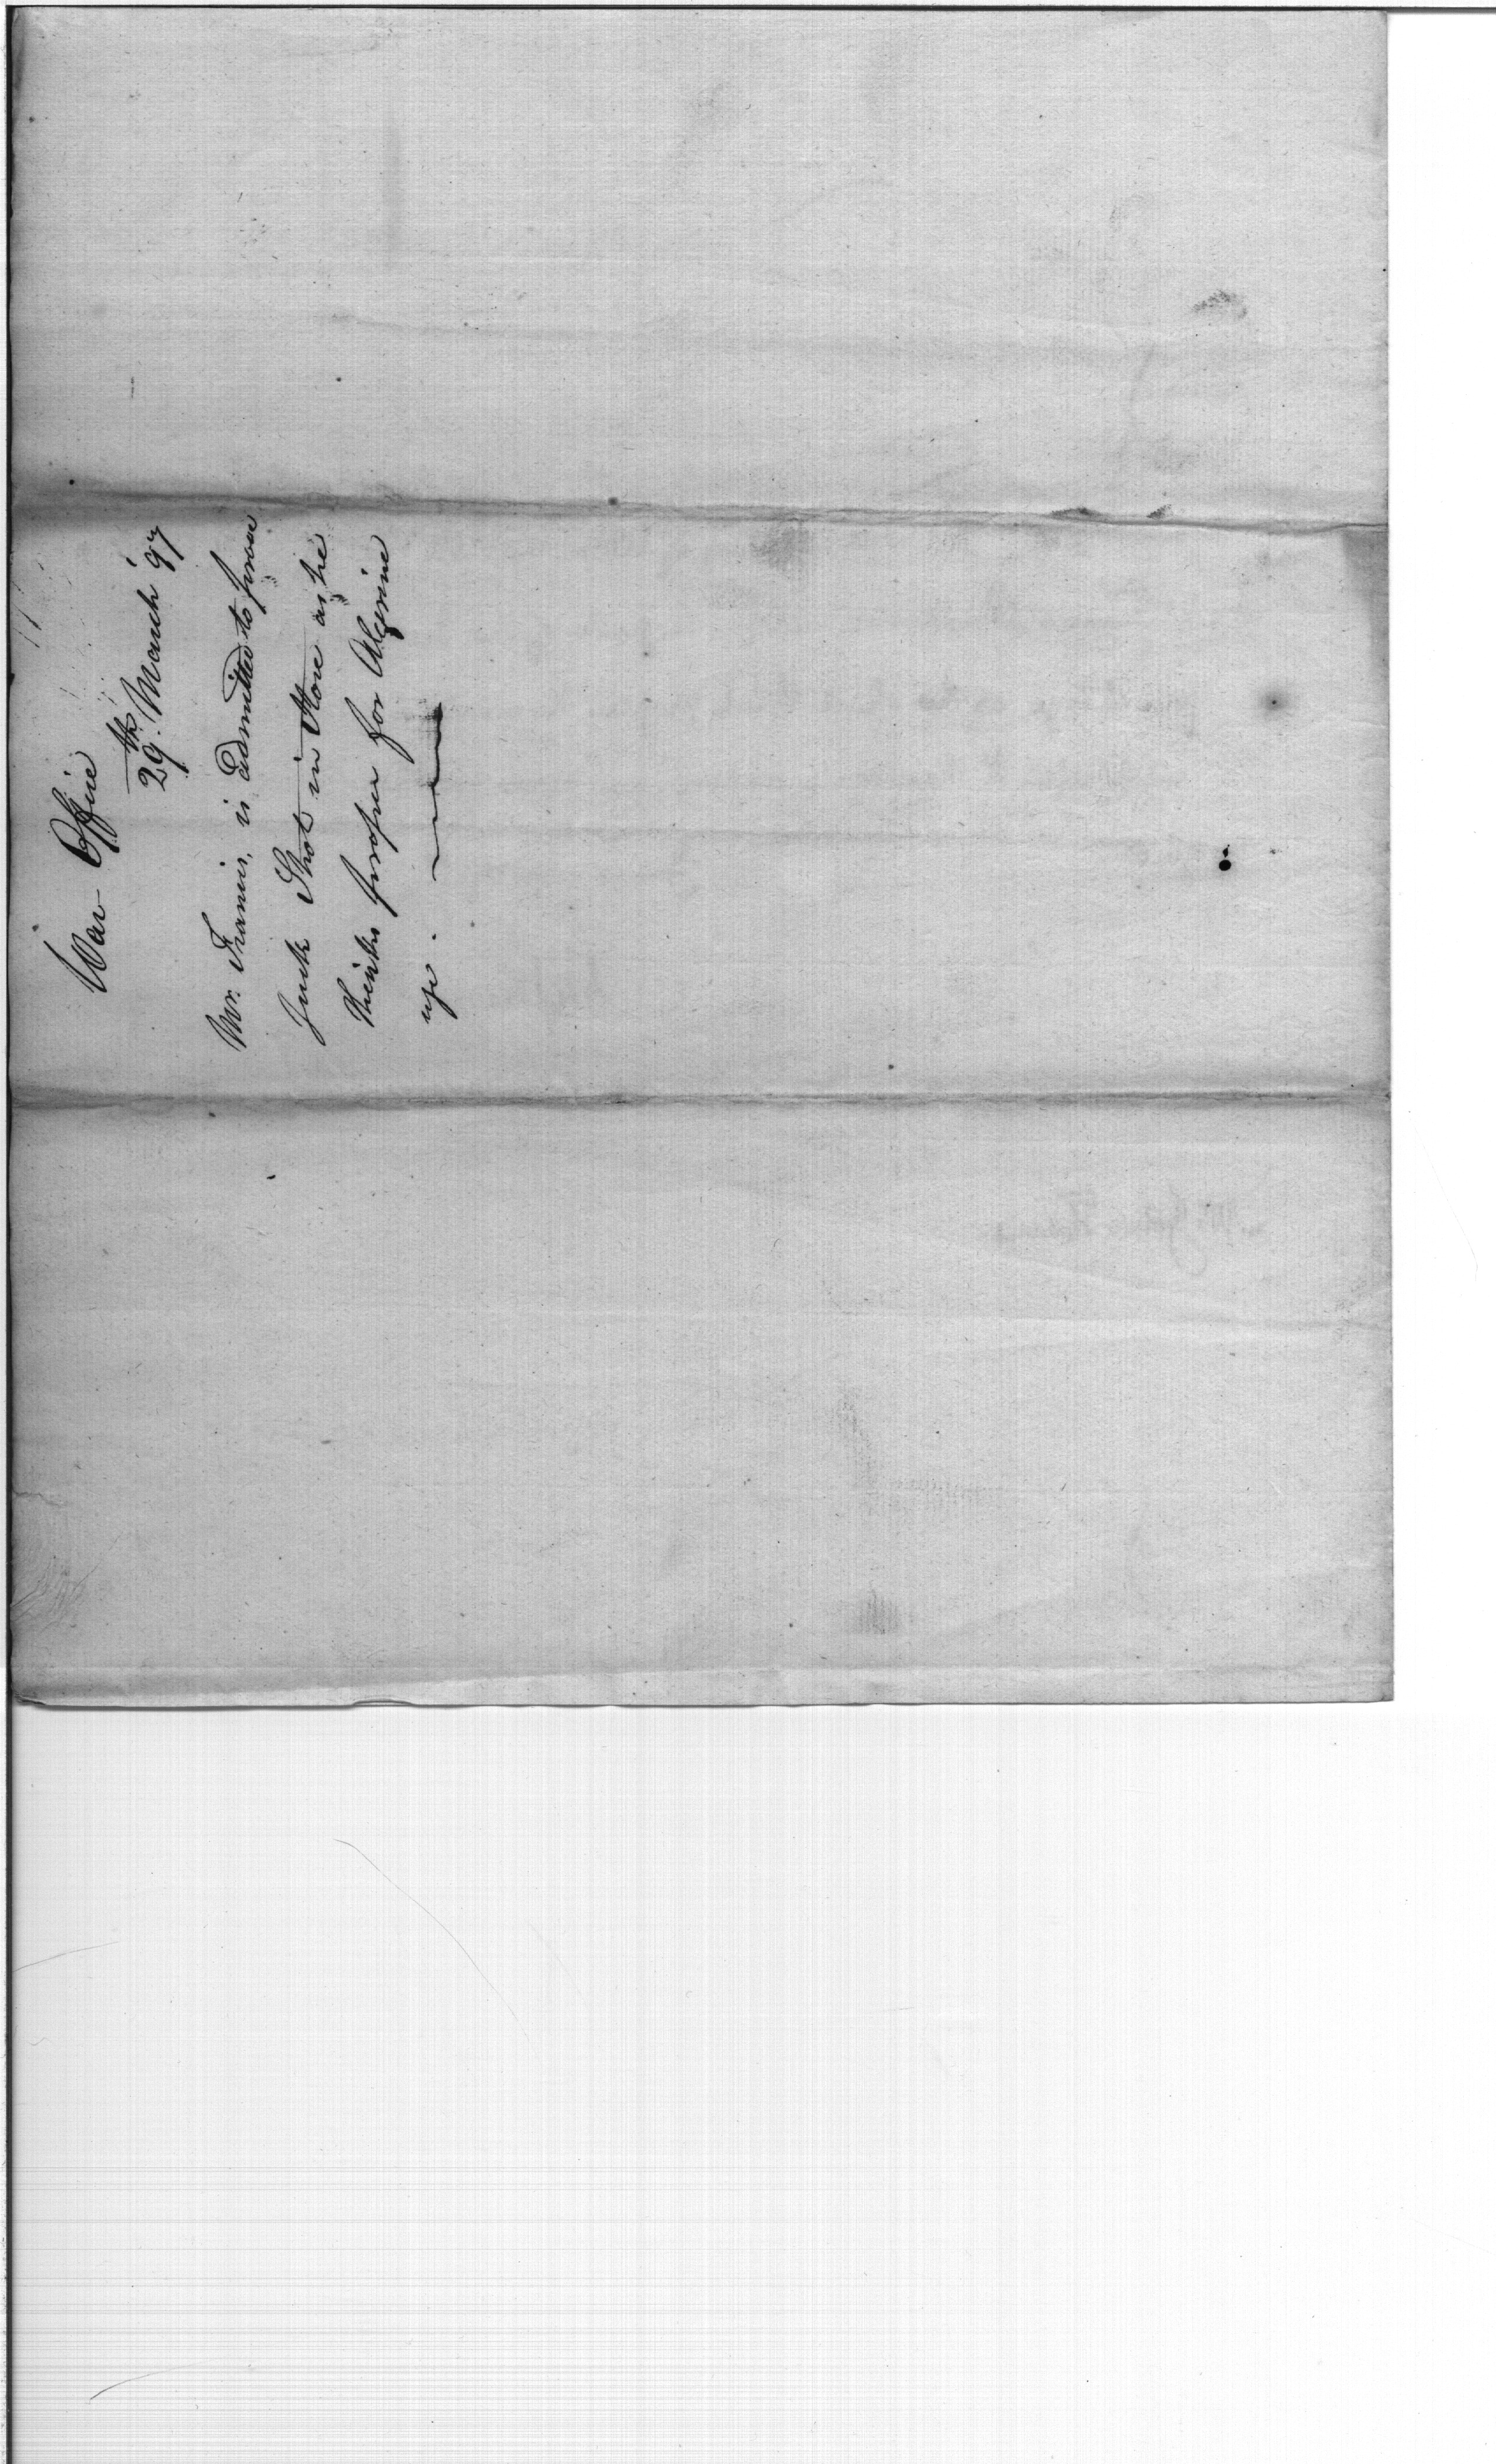 War Office
29th. March '97
Mr. Francis, is admitted to prove
Such Shot in Store as he
thinks proper for Algerine
use.